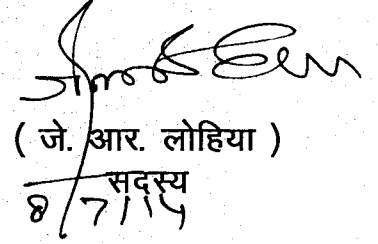 ( जे. आर. लोहिया )
सदस्य
8/7/14